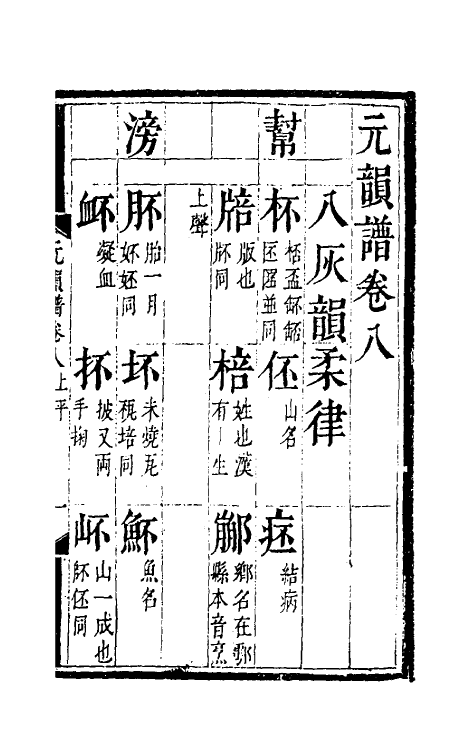 元韻譜卷八
八灰韻柔律
幫
杯 桮盃䦼並同
伾 山名
㾦 結病
㸬 版也 㸬同
棓 姓也漢有丨生
鄁 鄉名在鄠縣本音烹
上聲
滂
胚 胎一月 妚妚同
坯 未燒瓦 㼟培同
魾 魚名
衃 凝血
抔 披又兩手掬
岯 山一成也 㔻伾同
元韻譜卷八上平
一